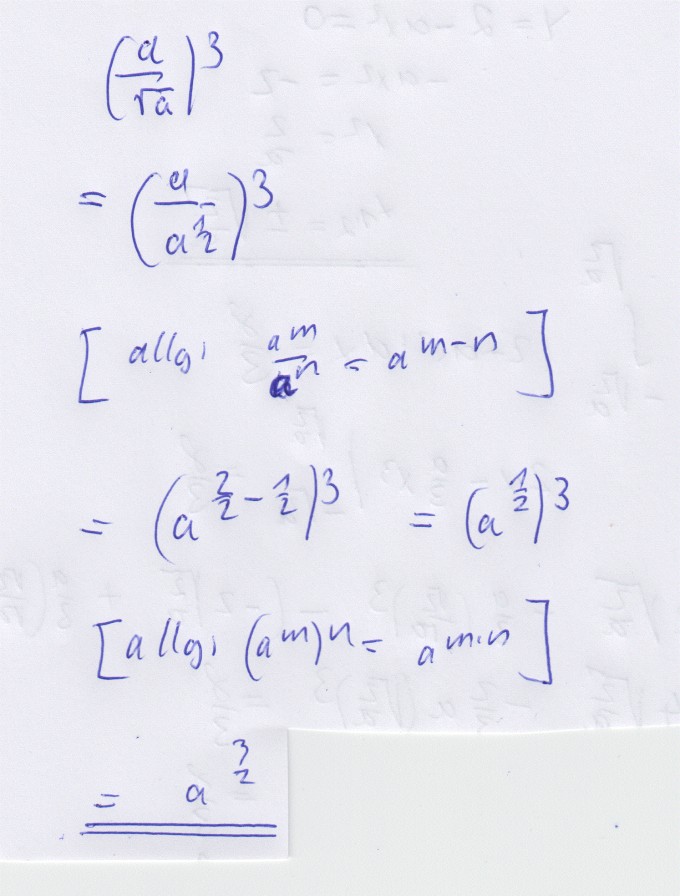 (a/√a)^3
= (a/a^(1/2))^3
[allg. a^m/a^n = a^(m-n)]
= (a^(2/2 - 1/2))^3 = (a^(1/2))^3
[allg. (a^m)^n = a^(m·n)]
= a^(3/2)